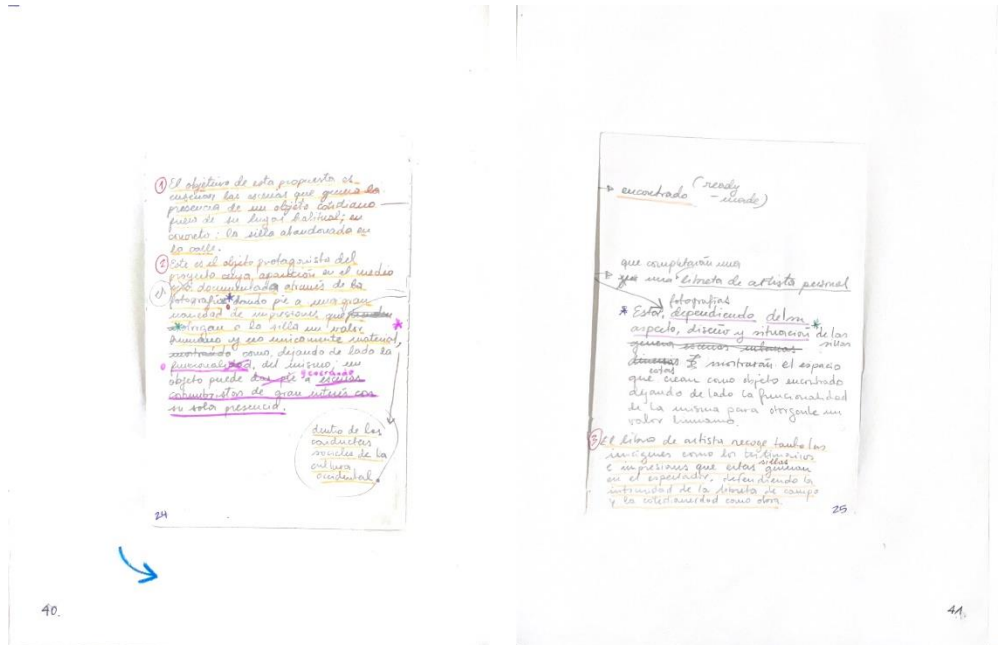 ① El objetivo de esta propuesta es
enseñar las escenas que genera la
presencia de un objeto cotidiano
fuera de su lugar habitual; en
concreto: la silla abandonada en
la calle.
② Este es el objeto protagonista del
proyecto cuya aparición en el medio
está documentada a través de la
fotografía dando pie a una gran
variedad de impresiones que
otorgan a la silla un valor
humano y no únicamente material,
mostrando como, dejando de lado la
funcionalidad, del mismo, un
objeto puede dar pie a escenas
generando
de gran interés con
su sola presencia.
el
dentro de las
conductas
sociales de la
cultura
occidental.
24
40.
encontrado (ready
-made)
que completarán una
una libreta de artista personal
fotografías
* Estas, dependiendo del
aspecto, diseño y situación de las
sillas
genera escenas
diversas
estas
mostrarán el espacio
que crean como objeto encontrado
dejando de lado la funcionalidad
de la misma para otorgarle un
valor humano.
③ El libro de artista recoge tanto las
imágenes como los testimonios
e impresiones que estas generan
sillas
en el espectador, defendiendo la
intimidad de la libreta de campo
y la cotidianeidad como obra.
25
41.